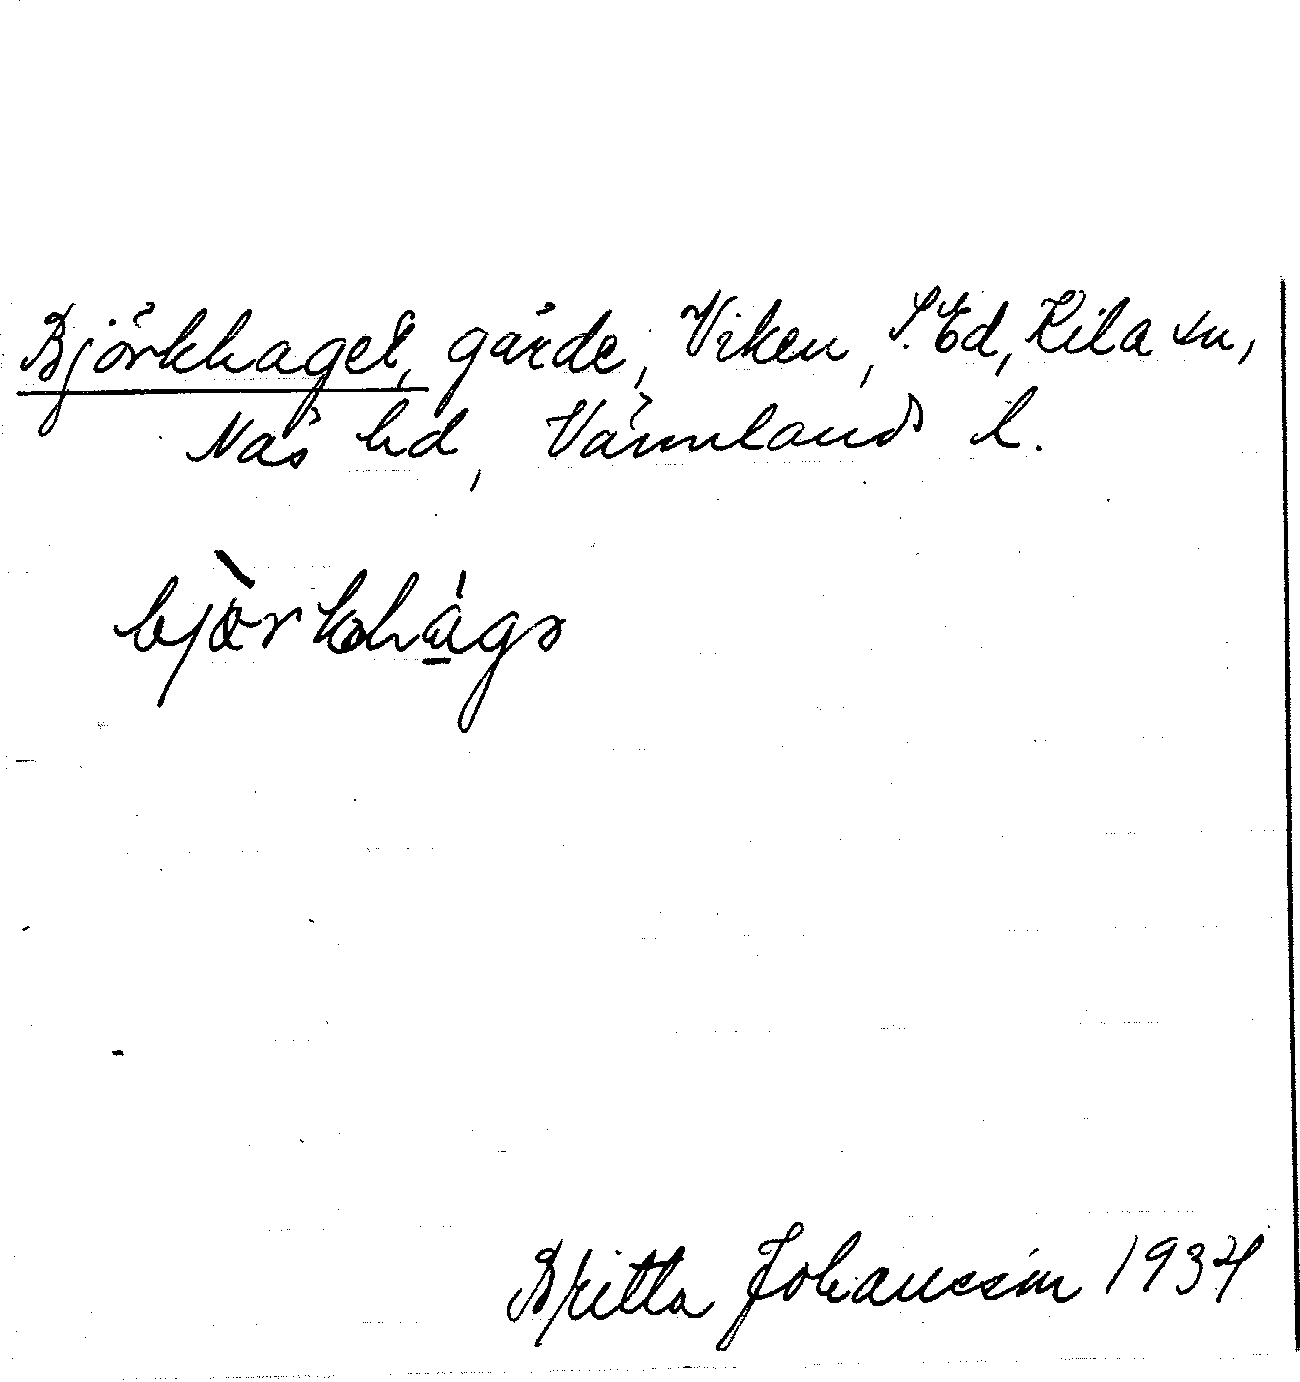 Björkhaget, gärde, Viken, S. Ed, Kila sn,
Näs hd, Värmlands l.
bjòrkhágə
Britta Johansson 1934